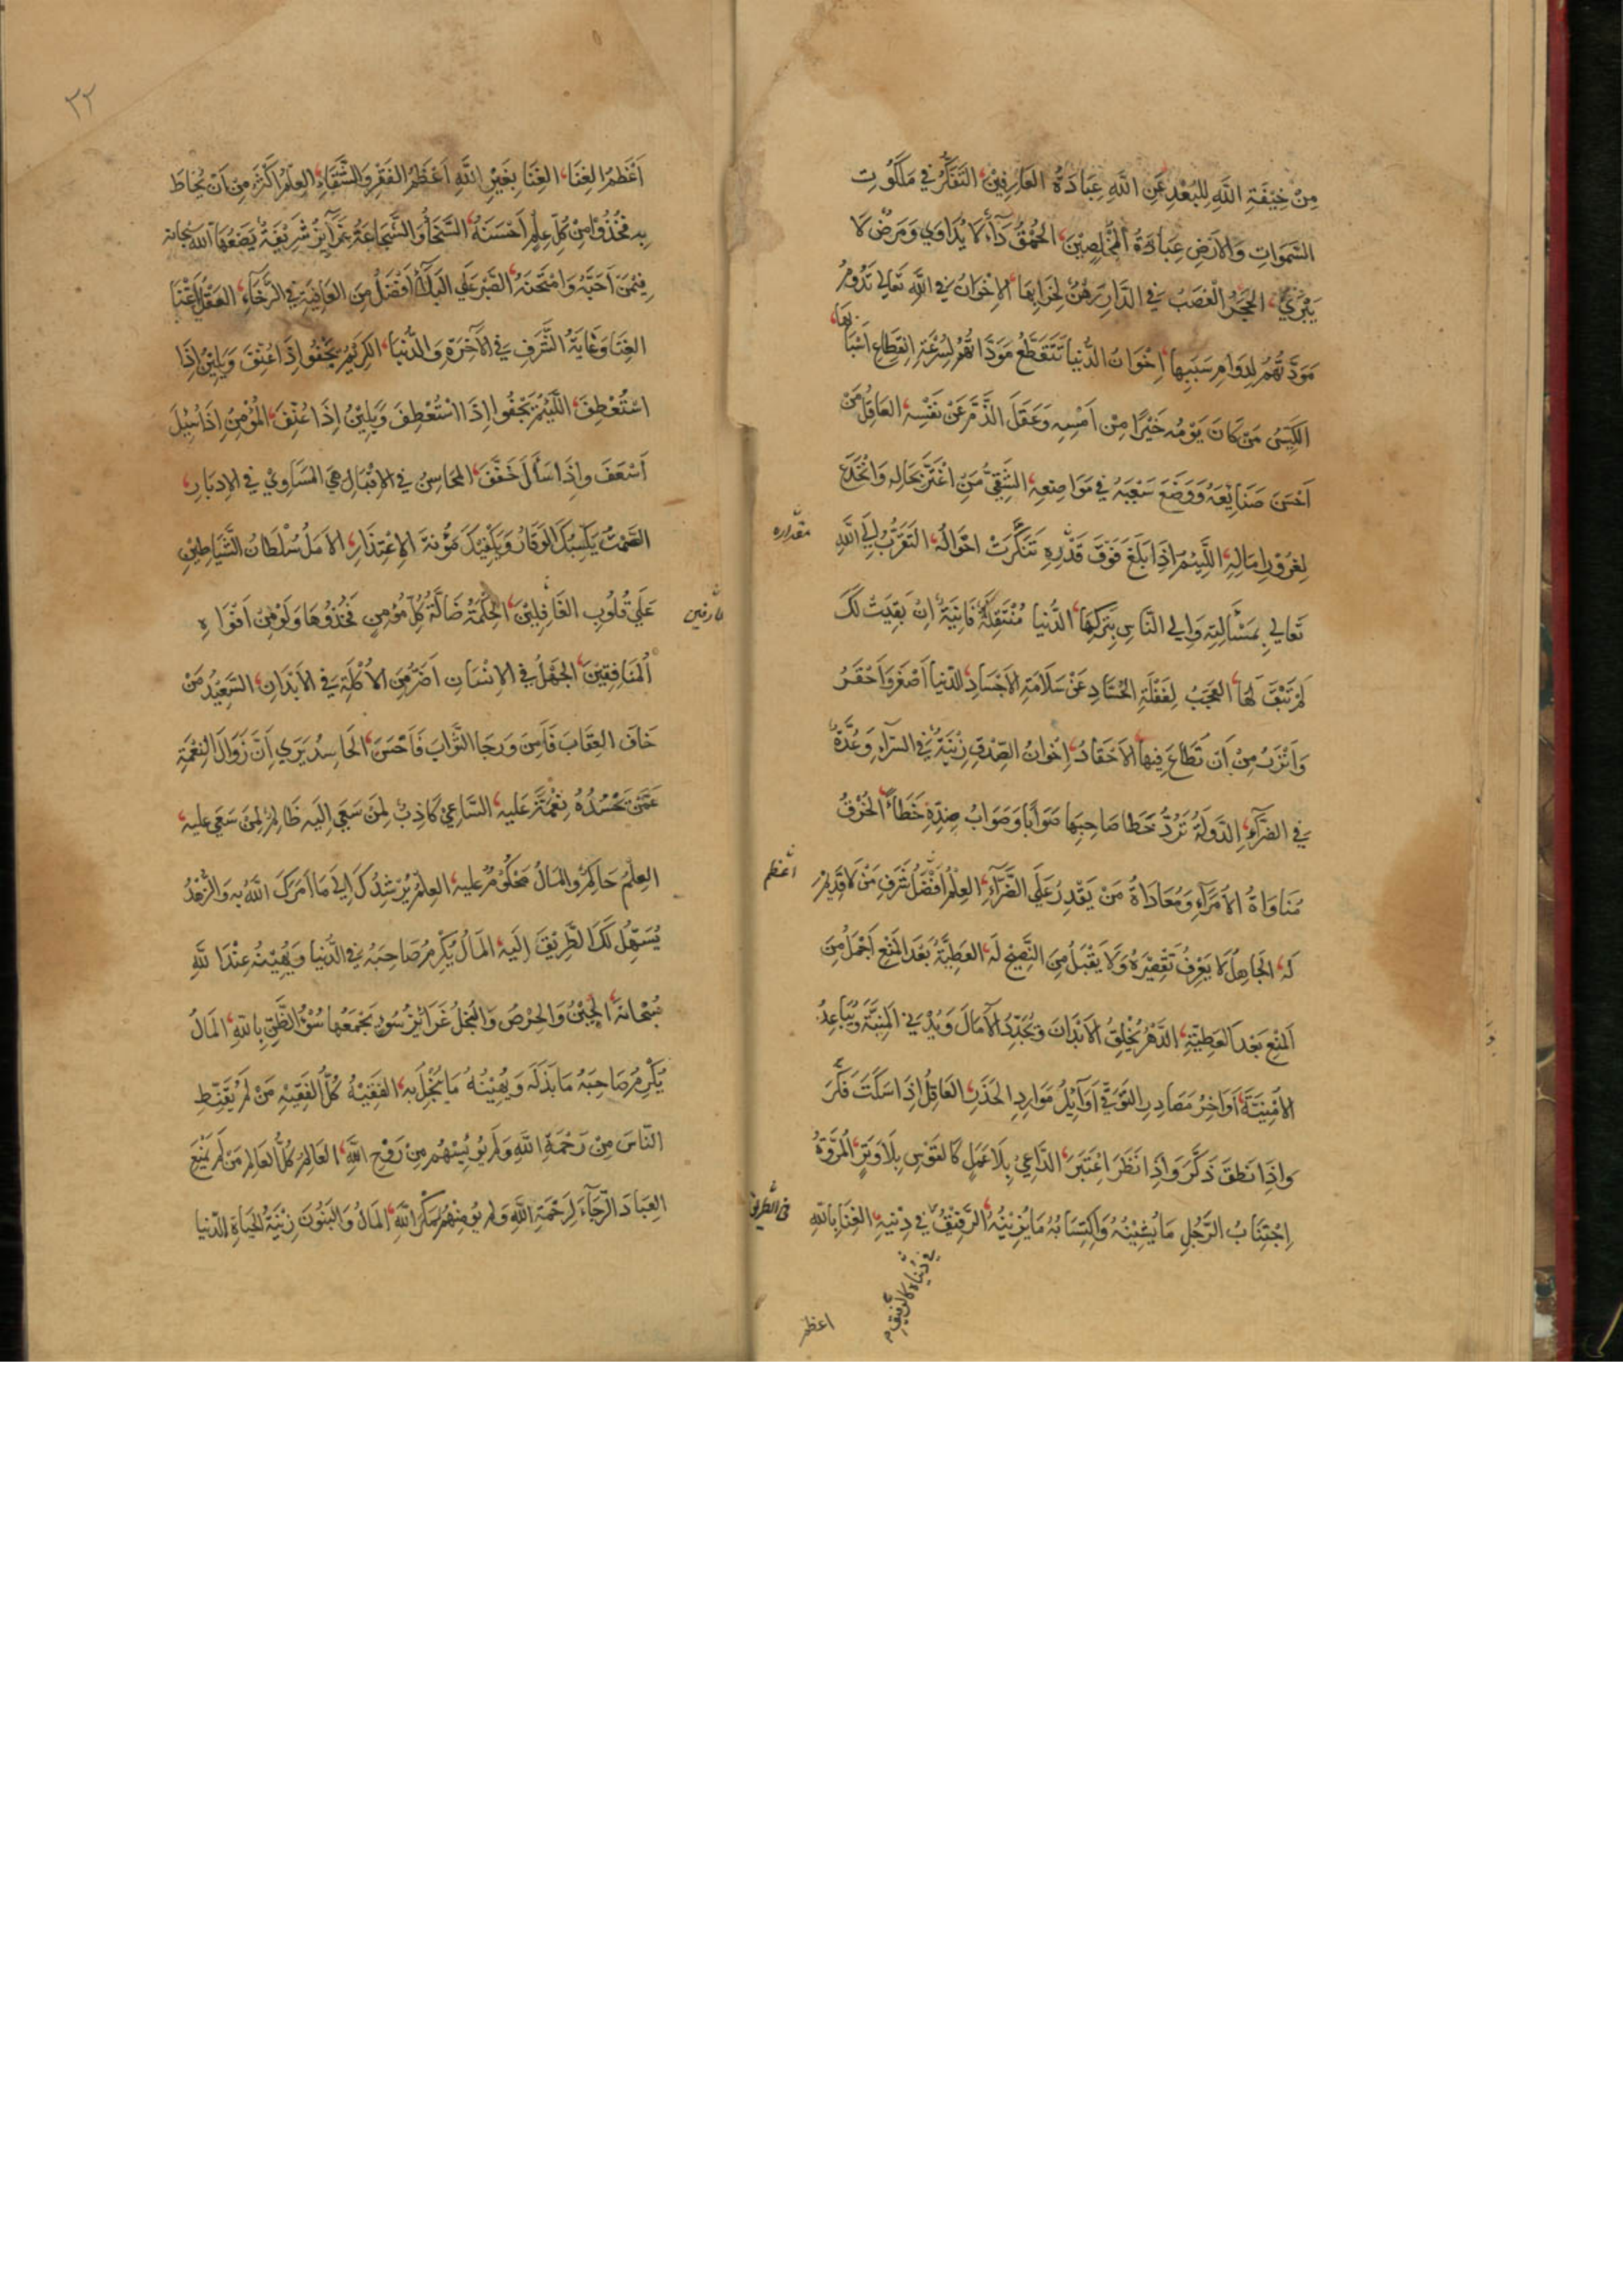 مِنْ خِيْفَةِ اللّٰهِ لِلبُعْدِ عَنِ اللّٰهِ عِبَادَةُ العَارِفِيْنَ، التَفَكُّرُ فِي مَلَكُوْتِ
السَّمَوَاتِ وَالاَرْضِ عِبَادَةُ المُخْلِصِيْنَ، الحُمْقُ دَآءٌ لَا يُدَاوِي وَمَرَضٌ لَا
يَبْرَيُ، الحَجَرُ الْغَصَبُ فِي الدَّارِ رَهْنٌ لِخَرَابِهَا، الاِخْوَانُ فِي اللّٰهِ تَعَالي تَدُوْمُ
مَوَدَّتُهُمْ لِدَوَامِ سَبَبِهَا، اِخْوَانُ الدُّنْيا تَتَقَطَّعُ مَوَدَّاتهُمْ لِسُرْعَةِ اِنْقِطَاعِ اَسْبَا
بِهَا،
الكَيِّسُ مَنْ كَانَ يَوْمُه خَيْرًا مِنْ اَمْسِه وَعَقَلَ الذَّمَّ عَنْ نَفْسِه، العَاقِلُ مَنْ
اَحْسَنَ صَنَايِعَهُ وَوَضَعَ سَعْيَهُ فِي مَوَاضِعِه، الشَّقِيُّ مَنْ اغْتَرَّ بِحَالِه وَانْخَدَعَ
لِغُرُوْرِ اٰمَالِه، اللَّئِيْمُ اِذَا بَلَغَ فَوْقَ قَدْرِه تَنَكَّرَتْ اَحْوَالُهُ، التَقَرُّبُ اِلَي اللّٰهِ
مقداره
تَعَالي بِمَسْأَلَتِه وَاِلي النَّاسِ بِتَرْكِهَا، الدُّنيا مُنْتَقِلَةٌ فَانِيَةٌ، اِنْ بَقِيَتْ لَكَ
لَمْ تَبْقَ لَهَا، العَجَبُ لِغَفْلَةِ الحُسَّادِ عَنْ سَلَامَةِ الاَجْسَادِ، الدُّنيا اَصْغَرُ وَاَحْقَرُ
وَاَنْزَرُ مِنْ اَنْ تُطَاعَ فِيهَا الاَحْقَادُ، اِخْوَانُ الصِّدْقِ زِيْنَةٌ فِي السَّرآءِ وَعُدَّةٌ
فِي الضَرَّآءِ، الدَّوْلَةُ تَرُدُّ خَطَا صَاحِبِهَا صَوَابًا وَصَوَابُ ضِدِّهِ خَطَاءً، الخُرْقُ
مُنَاوَاةُ الاُمَرَآءِ وَمُعَادَاةُ مَنْ يَقْدِرُ عَلَي الضَّرَّآءِ، العِلْمُ اَفْضَلُ شَرَفِ مَنْ لَا قَدِيْمَ
اعظم
لَهُ، الجَاهِلُ لَا يَعْرِفُ تَقْصِيْرَهُ وَلَا يَقْبَلُ مِنَ النَّصِيْحِ لَهُ، العَطِيَّةُ بَعْدَ المَنْعِ اَجْمَلُ مِنَ
المَنْعِ بَعْدَ العَطِيَّةِ، الدَّهْرُ يُخْلِقُ الاَبْدَانَ وَيُجَدِّدُ الآمَالَ وَيُدْنِي المَنِيَّةَ وَيُبَاعِدُ
الاُمْنِيَّةَ، اَوَاخِرُ مَصَادِرِ التَوَقِّي اَوَآئِلُ مَوَارِدِ الحَذَرِ، العَاقِلُ اِذَا سَكَتَ فَكَّرَ
وَاِذَا نَطَقَ ذَكَّرَ وَاِذَا نَظَرَ اعْتَبَرَ، الدَّاعِيْ بِلَا عَمَلٍ كَالقَوْسِ بِلَا وَتَرٍ، المُرَوَّةُ
اِجْتِنَابُ الرَّجُلِ مَا يُشِيْنُهُ وَاكْتِسَابُهُ مَا يَزِيْنُهُ، الرَّفِيْقُ فِي دِيْنِه، الغِنَا بِاللّٰهِ
في الطريق
في دنياه كالرفيق
اعظم
٣٢
اَعْظَمُ الغِنَا، الغِنَا بِغَيْرِ اللّٰهِ اَعْظَمُ الفَقْرِ وَالشَّقَاءِ، العِلْمُ اَكْثَرُ مِنْ اَنْ يُحَاطَ
بِه فَخُذُوْا مِنْ كُلِّ عِلْمٍ اَحْسَنَهُ، السَّخَاُ وَالشَّجَاعَةُ غَرَآئِزُ شَرِيْفَةٌ يَضَعُهَا اللّٰهُ سُبْحَانَه
فِيْمَنْ اَحَبَّهُ وَامْتَحَنَهُ، الصَّبْرُ عَلَي البَلَآءِ اَفْضَلُ مِنَ العَافِيَةِ فِي الرَّخَآءِ، العَقْلُ اَغْنَا
الغِنَا وَغَايَةُ الشَّرَفِ فِي الاٰخِرَةِ وَالدُّنْيَا، الكَرِيْمُ يَجْفُو اِذَا عُنِّفَ وَيَلِيْنُ اِذَا
اسْتُعْطِفَ، اللَّئِيْمُ يَجْفُوا اِذَا اسْتُعْطِفَ وَيَلِيْنُ اِذَا عُنِّفَ، المُؤْمِنُ اِذَا سُئِلَ
اَسْعَفَ وَاِذَا سَأَلَ خَفَّفَ، المَحَاسِنُ فِي الاِقْبَالِ هِيَ المَسَاوِيْ فِي الاِدْبَارِ،
الصَّمْتُ يَكْسِبُكَ الوَقَارَ وَيَكْفِيْكَ مَؤُنَةَ الاِعْتِذَارِ، الاَمَلُ سُلْطَانُ الشَّيَاطِيْنِ
عَلَي قُلُوْبِ الغَافِلِيْنَ، الحِكْمَةُ ضَالَّةُ كُلِّ مُؤْمِنٍ فَخُذُوْهَا وَلَوْ مِنْ اَفْوَاهِ
المُنَافِقِيْنَ، الجَهْلُ فِي الاِنْسَانِ اَضَرُّ مِنَ الاُكْلَةِ فِي الاَبْدَانِ، السَّعِيْدُ مَنْ
خَافَ العِقَابَ فَاٰمَنَ وَرَجَا الثَّوَابَ فَاَحْسَنَ، الحَاسِدُ يَرَي اَنَّ زَوَالَ النِّعْمَةِ
عَمَّنْ يَحْسُدُهُ نِعْمَةٌ عَلَيه، السَّاعِيْ كَاذِبٌ لِمَنْ سَعَي اِلَيه ظَالِمٌ لِمَنْ سَعَي عَليه،
العِلْمُ حَاكِمٌ وَالمَالُ مَحْكُوْمٌ عليه، العِلْمُ يُرْشِدُكَ اِلي مَا اَمَرَكَ اللّٰهُ بِه وَالزُّهْدُ
يُسَهِّلُ لَكَ الطَّرِيْقَ اِلَيه، المَالُ يُكْرِمُ صَاحِبَهُ فِي الدُّنيا وَيُهِيْنُهُ عِنْدَ اللّٰهِ
سُبْحَانَهُ، الجُبْنُ وَالحِرْصُ وَالبُخْلُ غَرَائِزُ سُوْءٍ يَجْمَعُهَا سُوْءُ الظَّنِّ بِاللّٰهِ، المَالُ
يُكْرِمُ صَاحِبَهُ مَا بَذَلَهُ وَيُهِيْنُهُ مَا بَخِلَ بِه، الفَقِيْهُ كُلُّ الفَقِيْهِ مَنْ لَمْ يُقَنِّطِ
النَّاسَ مِنْ رَحْمَةِ اللّٰهِ وَلَمْ يُوْئِيْسْهُمْ مِنْ رَوْحِ اللّٰهِ، العَالِمُ كُلُّ العَالِمِ مَنْ لَمْ يَمْنَعِ
العِبَادَ الرَّجَآءَ لِرَحْمَةِ اللّٰهِ وَلَمْ يُؤْمِنْهُمْ مَكْرَ اللّٰهِ، المَالُ وَالبَنُوْنَ زِيْنَةُ الحَيَاةِ الدُّنيا